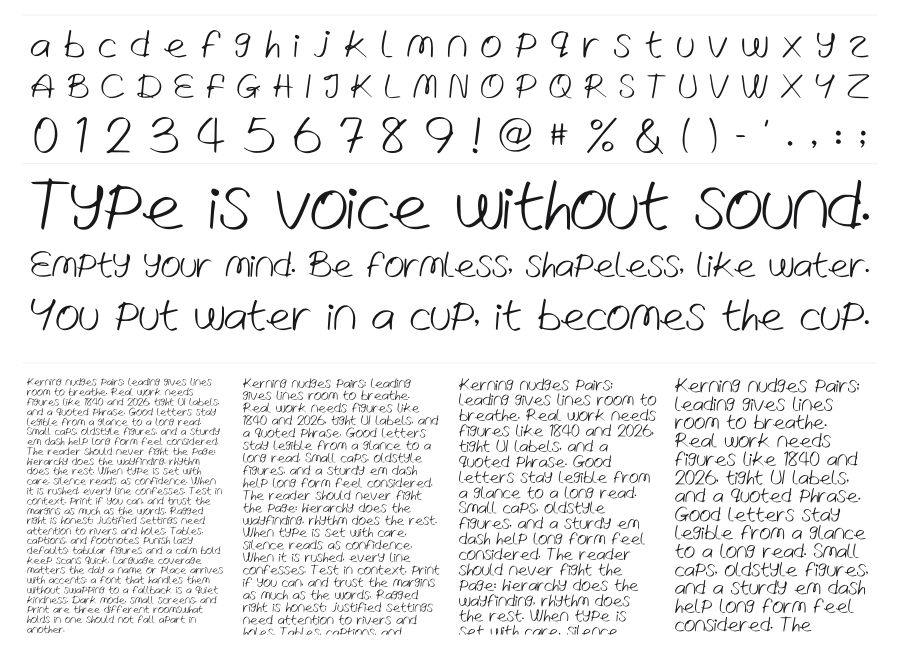 a b c d e f g h i j k l m n o p q r s t u v w x y z
A B C D E F G H I J K L M N O P Q R S T U V W X Y Z
0 1 2 3 4 5 6 7 8 9 ! @ # % & ( ) - ' . , : ;
Type is voice without sound.
Empty your mind. Be formless, shapeless, like water.
You put water in a cup, it becomes the cup.
Kerning nudges pairs; leading gives lines
room to breathe. Real work needs
figures like 1840 and 2026, tight UI labels,
and a quoted phrase. Good letters stay
legible from a glance to a long read.
Small caps, oldstyle figures, and a sturdy
em dash help long form feel considered.
The reader should never fight the page;
hierarchy does the wayfinding, rhythm
does the rest. When type is set with
care, silence reads as confidence. When
it is rushed, every line confesses. Test in
context. Print if you can, and trust the
margins as much as the words. Ragged
right is honest. Justified settings need
attention to rivers and holes. Tables,
captions, and footnotes punish lazy
defaults; tabular figures and a calm bold
keep scans quick. Language coverage
matters the day a name or place arrives
with accents; a font that handles them
without swapping to a fallback is a quiet
kindness. Dark mode, small screens, and
print are three different rooms.what
holds in one should not fall apart in
another.
Kerning nudges pairs; leading
gives lines room to breathe.
Real work needs figures like
1840 and 2026, tight UI labels, and
a quoted phrase. Good letters
stay legible from a glance to a
long read. Small caps, oldstyle
figures, and a sturdy em dash
help long form feel considered.
The reader should never fight
the page; hierarchy does the
wayfinding, rhythm does the rest.
When type is set with care,
silence reads as confidence.
When it is rushed, every line
confesses. Test in context. Print
if you can, and trust the margins
as much as the words. Ragged
right is honest. Justified settings
need attention to rivers and
holes. Tables, captions, and
Kerning nudges pairs;
leading gives lines room to
breathe. Real work needs
figures like 1840 and 2026,
tight UI labels, and a
quoted phrase. Good
letters stay legible from
a glance to a long read.
Small caps, oldstyle
figures, and a sturdy em
dash help long form feel
considered. The reader
should never fight the
page; hierarchy does the
wayfinding, rhythm does
the rest. When type is
set with care, silence
Kerning nudges pairs;
leading gives lines
room to breathe.
Real work needs
figures like 1840 and
2026, tight UI labels,
and a quoted phrase.
Good letters stay
legible from a glance
to a long read. Small
caps, oldstyle figures,
and a sturdy em dash
help long form feel
considered. The